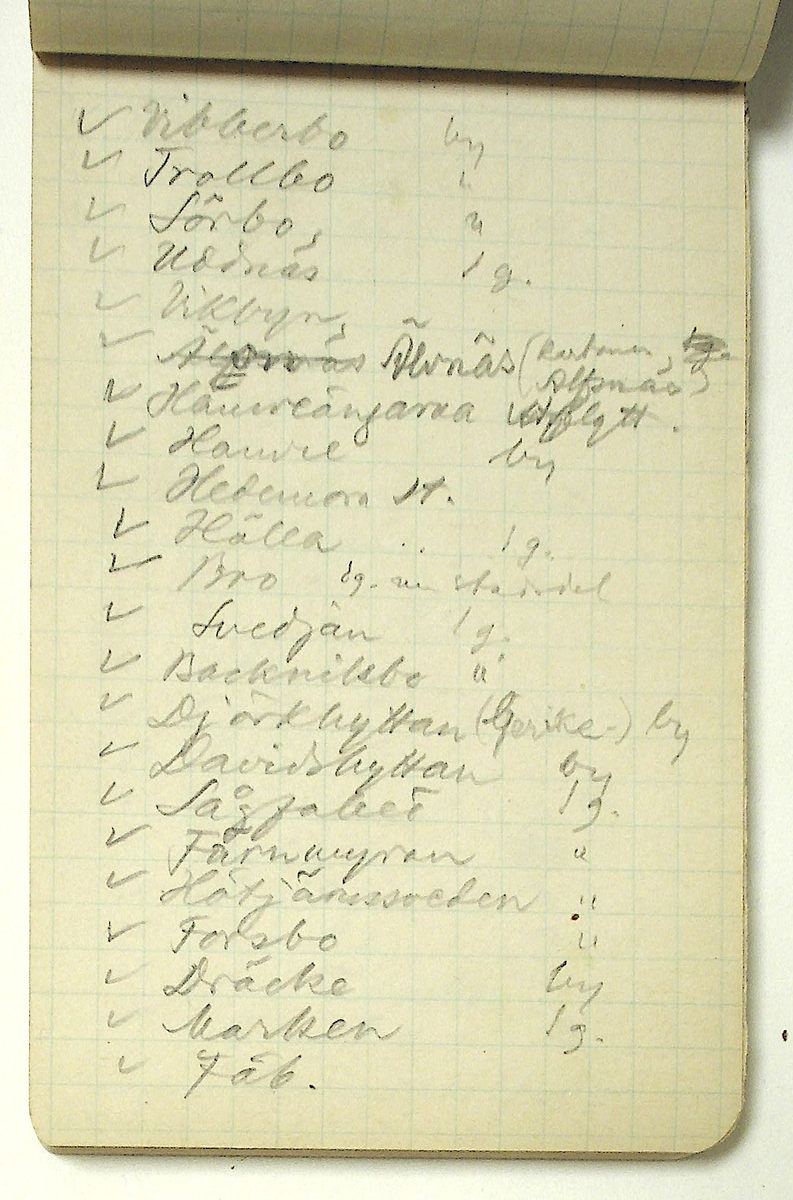 ✓ Vibberbo by
✓ Trollbo "
✓ Sörbo, "
✓ Uddnäs 1 g.
✓ Vikbyn,
✓ Älvnäs (kartan
Alfsnäs)
✓ Hamreängarna utflytt.
✓ Hamre by
✓ Hedemora st.
✓ Hälla 1 g.
✓ Bro stadsdel
✓ Svedjan 1 g.
✓ Backnilsbo "
✓ Djörkhyttan ( ) by
✓ Davidshyttan by
✓ Sågfallet 1 g.
✓ Färnmyran "
✓ Hötjärnssveden "
✓ Forsbo "
✓ Dräcke by
✓ Marken 1 g.
✓ Fäb.